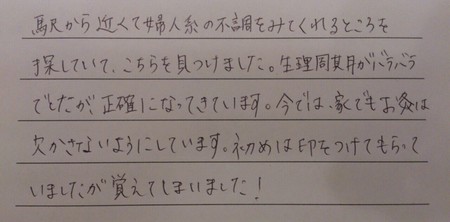 駅から近くて婦人系の不調をみてくれるところを
探していて、こちらを見つけました。生理周期がバラバラ
でしたが、正確になってきています。今では、家でもお灸は
欠かさないようにしています。初めは印をつけてもらって
いましたが覚えてしまいました!